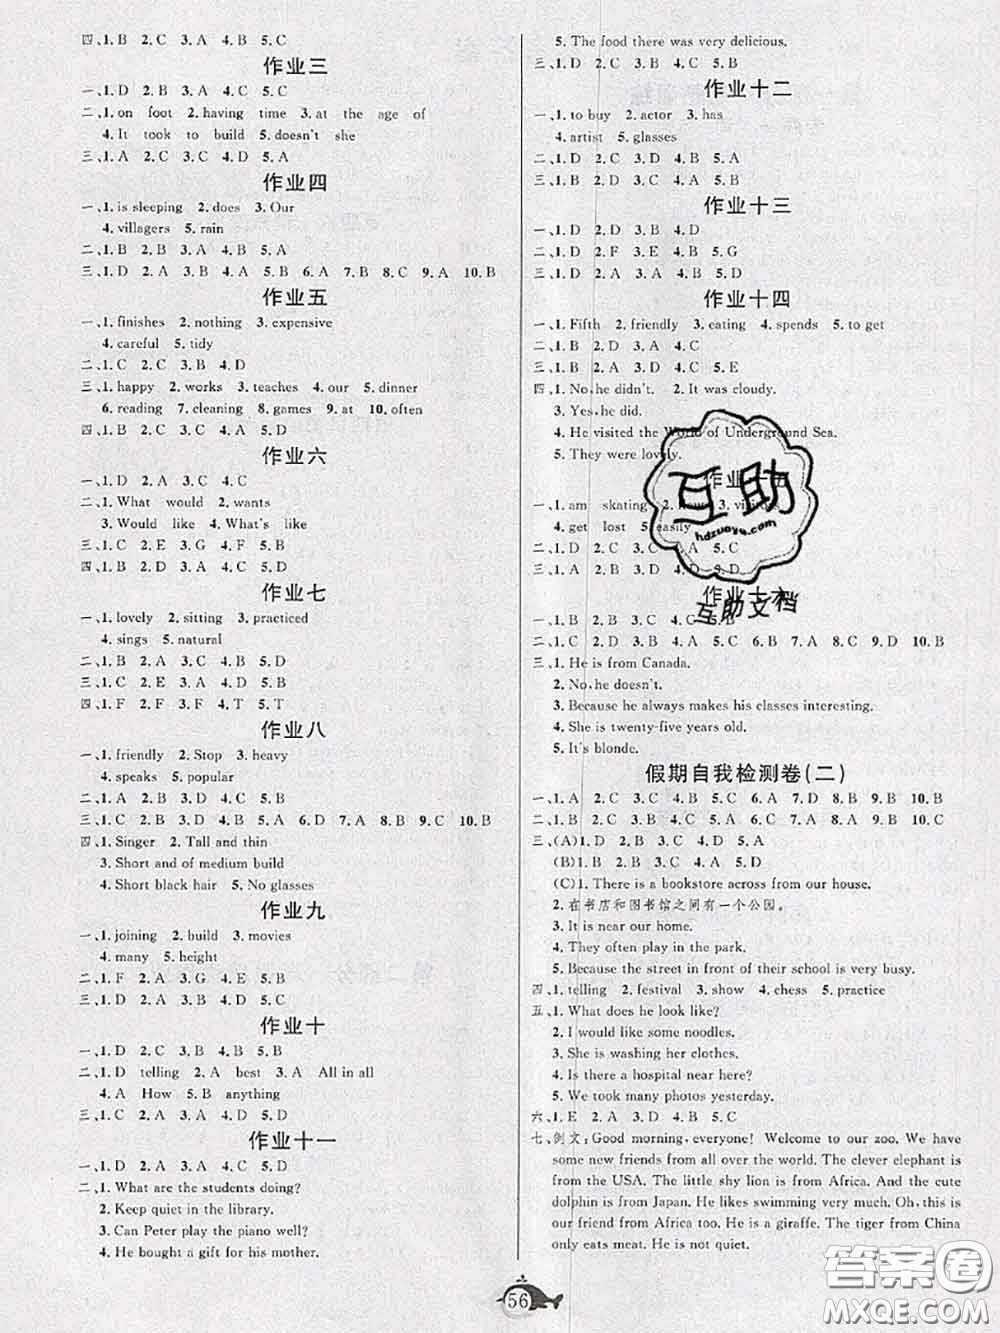 四、1. B 2. C 3. A 4. B 5. C
作业三
一、1. B 2. B 3. A 4. C 5. C
二、1. on foot 2. having time 3. at the age of
4. It took to build 5. doesn't she
三、1. A 2. C 3. D 4. C 5. A
作业四
一、1. is sleeping 2. does 3. Our
4. villagers 5. rain
二、1. B 2. B 3. A 4. B 5. A
三、1. D 2. A 3. B 4. A 5. B 6. A 7. B 8. C 9. A 10. B
作业五
一、1. finishes 2. nothing 3. expensive
4. careful 5. tidy
二、1. C 2. C 3. B 4. D
三、1. happy 2. works 3. teaches 4. our 5. dinner
6. reading 7. cleaning 8. games 9. at 10. often
四、1. D 2. C 3. A 4. B 5. D
作业六
一、1. D 2. A 3. C 4. C
二、1. What would 2. wants
3. Would like 4. What's like
三、1. C 2. E 3. G 4. F 5. B
四、1. D 2. A 3. C 4. B 5. D
作业七
一、1. lovely 2. sitting 3. practiced
4. sings 5. natural
二、1. B 2. A 3. C 4. B 5. D
三、1. C 2. E 3. A 4. D 5. B
四、1. F 2. F 3. F 4. T 5. T
作业八
一、1. friendly 2. Stop 3. heavy
4. speaks 5. popular
二、1. C 2. A 3. D 4. C 5. B
三、1. C 2. B 3. D 4. A 5. D 6. A 7. B 8. B 9. C 10. B
四、1. Singer 2. Tall and thin
3. Short and of medium build
4. Short black hair 5. No glasses
作业九
一、1. joining 2. build 3. movies
4. many 5. height
二、1. F 2. A 3. G 4. E 5. B
三、1. D 2. A 3. B 4. D 5. C
作业十
一、1. D 2. C 3. B 4. A 5. B
二、1. D telling 2. A best 3. A All in all
4. A How 5. B anything
三、1. C 2. A 3. A 4. D 5. C
作业十一
一、1. D 2. A 3. D 4. C 5. B
二、1. What are the students doing?
2. Keep quiet in the library.
3. Can Peter play the piano well?
4. He bought a gift for his mother.
5. The food there was very delicious.
三、1. D 2. A 3. D 4. C 5. B
作业十二
一、1. to buy 2. actor 3. has
4. artist 5. glasses
二、1. D 2. C 3. D 4. B 5. A
三、1. B 2. C 3. D 4. A 5. B
作业十三
一、1. D 2. D 3. B 4. D
二、1. D 2. F 3. E 4. B 5. G
三、1. B 2. C 3. B 4. A 5. D
作业十四
一、1. Fifth 2. friendly 3. eating 4. spends 5. to get
二、1. B 2. D 3. A 4. C
三、1. B 2. C 3. A 4. D 5. E
四、1. No, he didn't. 2. It was cloudy.
3. Yes, he did.
4. He visited the World of Underground Sea.
5. They were lovely.
作业十五
一、1. am skating 2. 3.
4. get lost 5. easily
二、1. D 2. D 3. C 4. A 5. C
三、1. A 2. B 3. B 4. D 5. D
作业十六
一、1. B 2. B 3. C 4. C 5. B
二、1. C 2. D 3. B 4. A 5. C 6. B 7. A 8. C 9. D 10. B
三、1. He is from Canada.
2. No, he doesn't.
3. Because he always makes his classes interesting.
4. She is twenty-five years old.
5. It's blonde.
假期自我检测卷(二)
一、1. A 2. C 3. C 4. C 5. C 6. A 7. D 8. D 9. A 10. B
二、1. B 2. C 3. B 4. D 5. C 6. C 7. A 8. B 9. D 10. C
三、(A)1. D 2. C 3. B 4. D 5. A
(B)1. B 2. B 3. A 4. A 5. D
(C)1. There is a bookstore across from our house.
2. 在书店和图书馆之间有一个公园。
3. It is near our home.
4. They often play in the park.
5. Because the street in front of their school is very busy.
四、1. telling 2. festival 3. show 4. chess 5. practice
五、1. What does he look like?
2. I would like some noodles.
3. She is washing her clothes.
4. Is there a hospital near here?
5. We took many photos yesterday.
六、1. E 2. A 3. D 4. B 5. C
七、例文:Good morning, everyone! Welcome to our zoo. We have
some new friends from all over the world. The clever elephant is
from the USA. The little shy lion is from Africa. And the cute
dolphin is from Japan. He likes swimming very much. Oh, this is
our friend from Africa too. He is a giraffe. The tiger from China
only eats meat. He is not quiet.
56
互助
hdzuoye.com
互助文档
答案圈
MXQE.COM